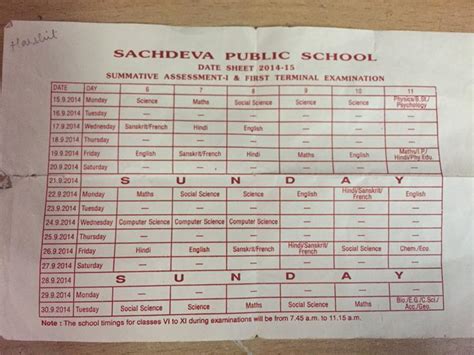 Harshit
SACHDEVA PUBLIC SCHOOL
DATE SHEET 2014-15
SUMMATIVE ASSESSMENT-I & FIRST TERMINAL EXAMINATION
DATE DAY 6 7 8 9 10 11
15.9.2014 Monday Science Maths Social Science Science Science Physics/B.St./ Psychology
16.9.2014 Tuesday — — — — — —
17.9.2014 Wednesday Sanskrit/French Hindi English — — —
18.9.2014 Thursday — — — — — —
19.9.2014 Friday English Sanskrit/French Hindi English Maths Maths/I.P./ Hindi/Phy.Edu
20.9.2014 Saturday — — — — — —
21.9.2014 SUNDAY
22.9.2014 Monday Maths Social Science Science English Hindi/Sanskrit/ French English
23.9.2014 Tuesday — — — — — —
24.9.2014 Wednesday Computer Science Computer Science Computer Science — — —
25.9.2014 Thursday — — — — — —
26.9.2014 Friday Hindi English Hindi/Sanskrit/ French Social Science Chem./Eco.
27.9.2014 Saturday — — — — — —
28.9.2014 SUNDAY
29.9.2014 Monday — — — — — —
30.9.2014 Tuesday Social Science Science Maths Social Science Maths Bio./E.G./C.Sci./ Acc./Geog.
Note : The school timings for classes VI to XI during examinations will be from 7.45 a.m. to 11.15 a.m.